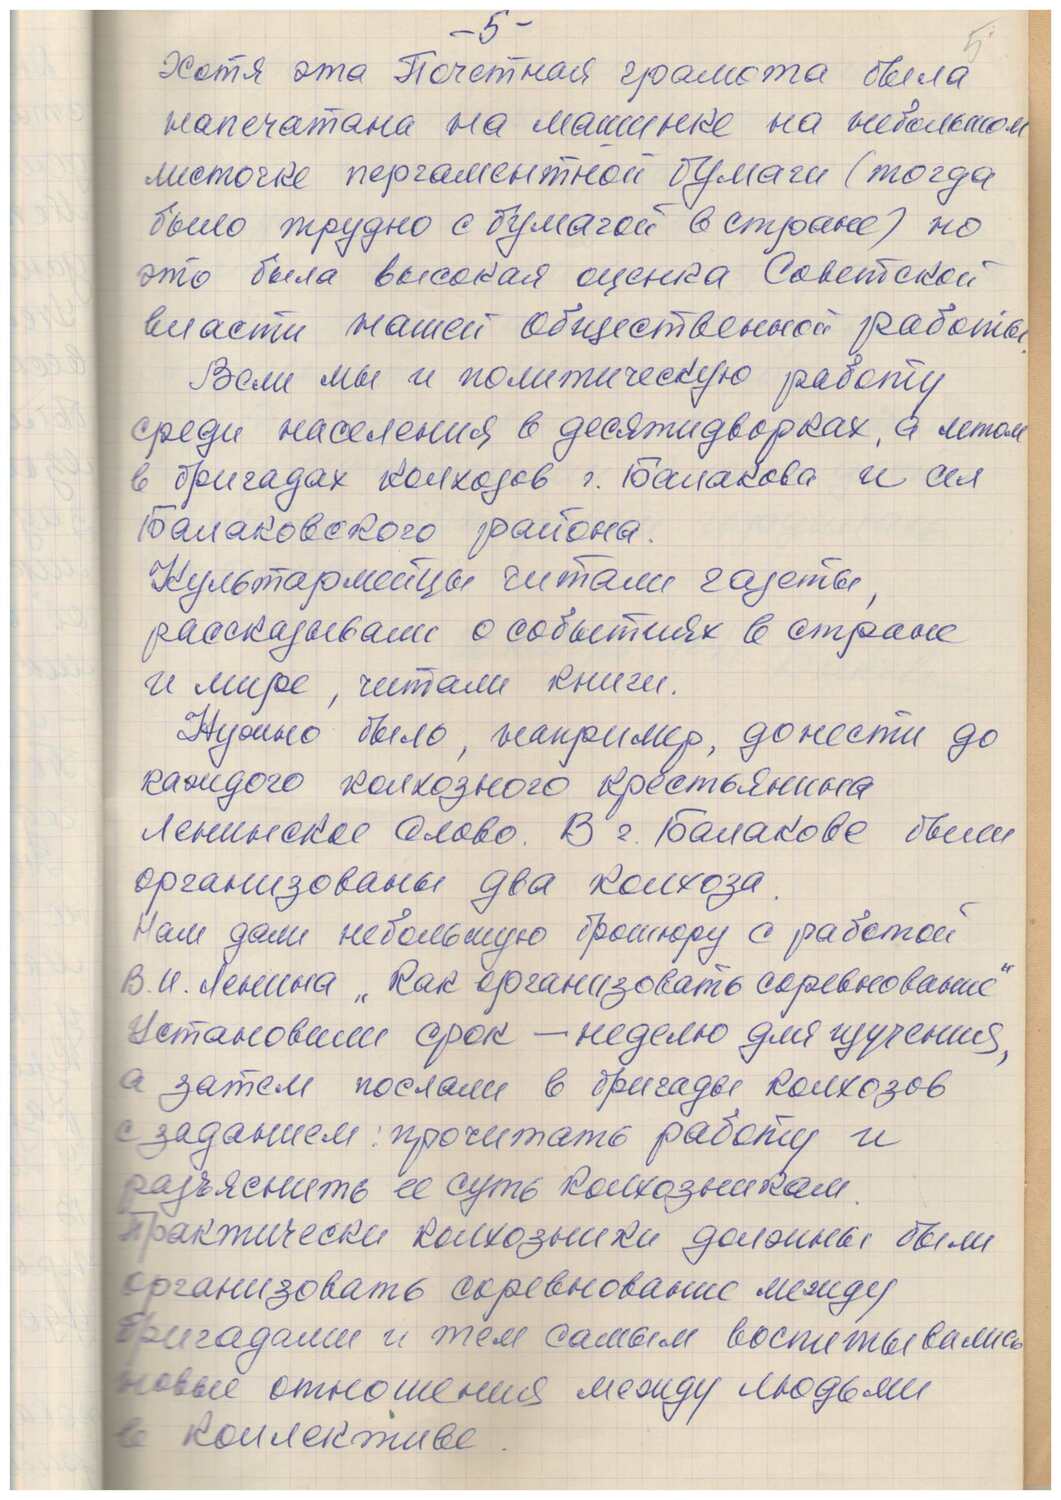 -5-
5
Хотя эта Почетная грамота была
напечатана на машинке на небольшом
листочке пергаментной бумаги (тогда
было трудно с бумагой в стране) но
это была высокая оценка Советской
власти нашей общественной работы.
Вели мы и политическую работу
среди населения в десятидворках, а летом
в бригадах колхозов г. Балакова и сел
Балаковского района.
Культармейцы читали газеты,
рассказывали о событиях в стране
и мире, читали книги.
Нужно было, например, донести до
каждого колхозного крестьянина
Ленинское слово. В г. Балакове были
организованы два колхоза.
Нам дали небольшую брошюру с работой
В.И. Ленина „Как организовать соревнование“
Установили срок — неделю для изучения,
а затем послали в бригады колхозов
с заданием: прочитать работу и
разъяснить ее суть колхозникам.
Практически колхозники должны были
организовать соревнование между
бригадами и тем самым воспитывались
новые отношения между людьми
в коллективе.